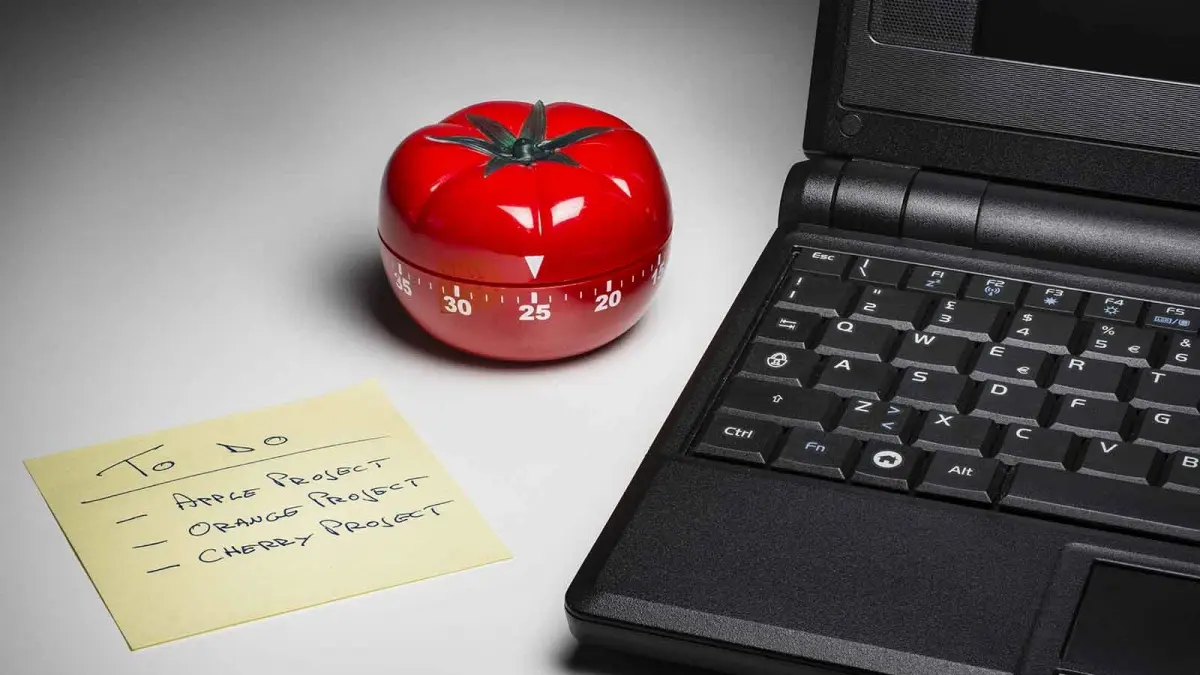 35 30 25 20 15
TO DO
- APPLE PROJECT
- ORANGE PROJECT
- CHERRY PROJECT
Esc F1 F2 F3 F4 F5
! " £ $ % &
1 2 3 4 5 € 6
Q W E € R T
A S D F G
Z X C V B
Ctrl Fn Alt